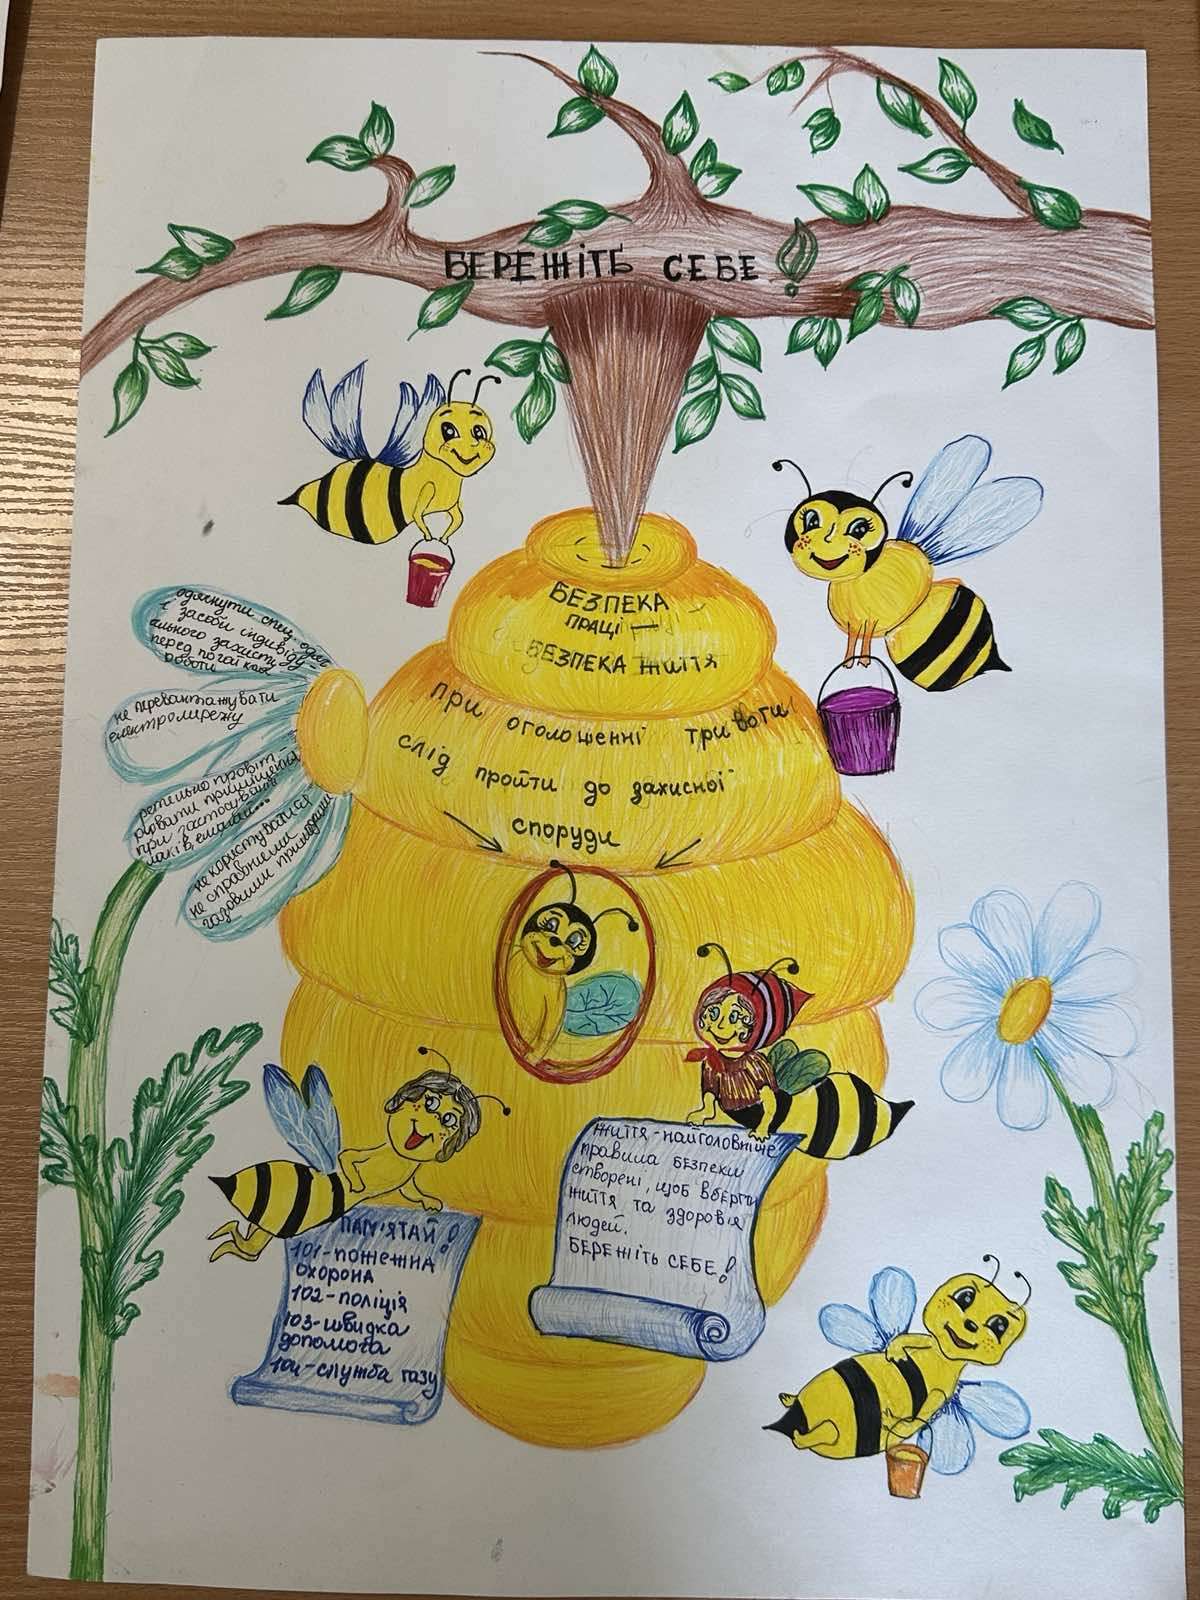 БЕРЕЖІТЬ СЕБЕ!
БЕЗПЕКА
ПРАЦІ —
БЕЗПЕКА ЖИТТЯ
При оголошенні тривоги
слід пройти до захисної
споруди
одягнути спец. одяг
і засоби індивіду-
ального захисту
перед початком
роботи
не перевантажувати
електромережу
ретельно провіт
рювати приміщення
при застосуванні
лаків, емалей...
не користуватися
не справними
газовими приладами
ПАМ'ЯТАЙ!
101-пожежна
охорона
102-поліція
103-швидка
допомога
104-служба газу
ЖИТТЯ-найголовніше
правила безпеки
створені, щоб вберегти
життя та здоров'я
людей.
БЕРЕЖІТЬ СЕБЕ!